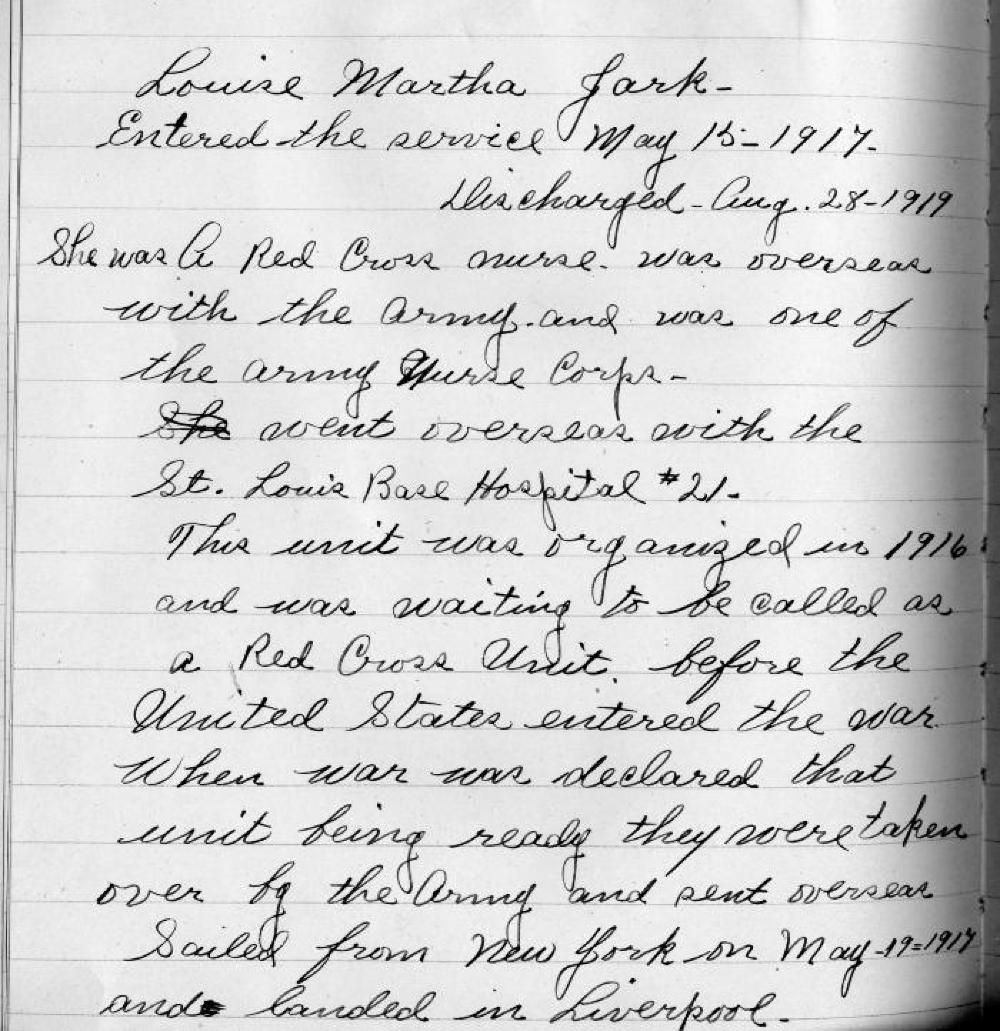 Louise Martha Jark-
Entered the service May 15-1917-
Discharged-Aug. 28-1919
She was A Red Cross nurse- was overseas
with the army. and was one of
the army Nurse Corps-
She went overseas with the
St. Louis Base Hospital #21-
This unit was organized in 1916
and was waiting to be called as
a Red Cross Unit. before the
United States entered the war
When war was declared that
unit being ready they were taken
over by the Army and sent overseas
Sailed from New York on May-19=1917
and landed in Liverpool-